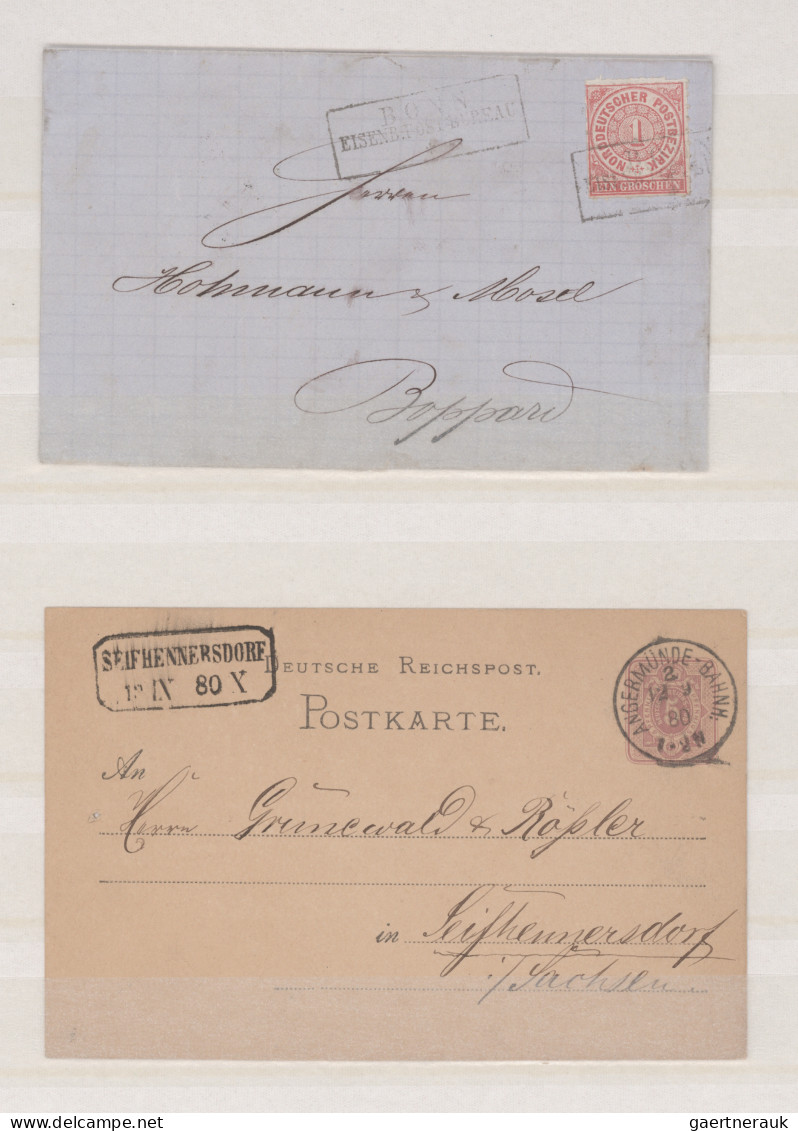 BONN
EISENB. POST-BUREAU
NORDDEUTSCHER POSTBEZIRK
1
EIN GROSCHEN
Herren
Hohmann & Mosel
Boppard
SEIFHENNERSDORF
IX 80 X
DEUTSCHE REICHSPOST.
POSTKARTE.
ANGERMÜNDE-BAHNH.
80
An
Herrn Grünewald & Rößler
in Seifhennersdorf
i/Sachsen
gaertnerauk @ delcampe.net